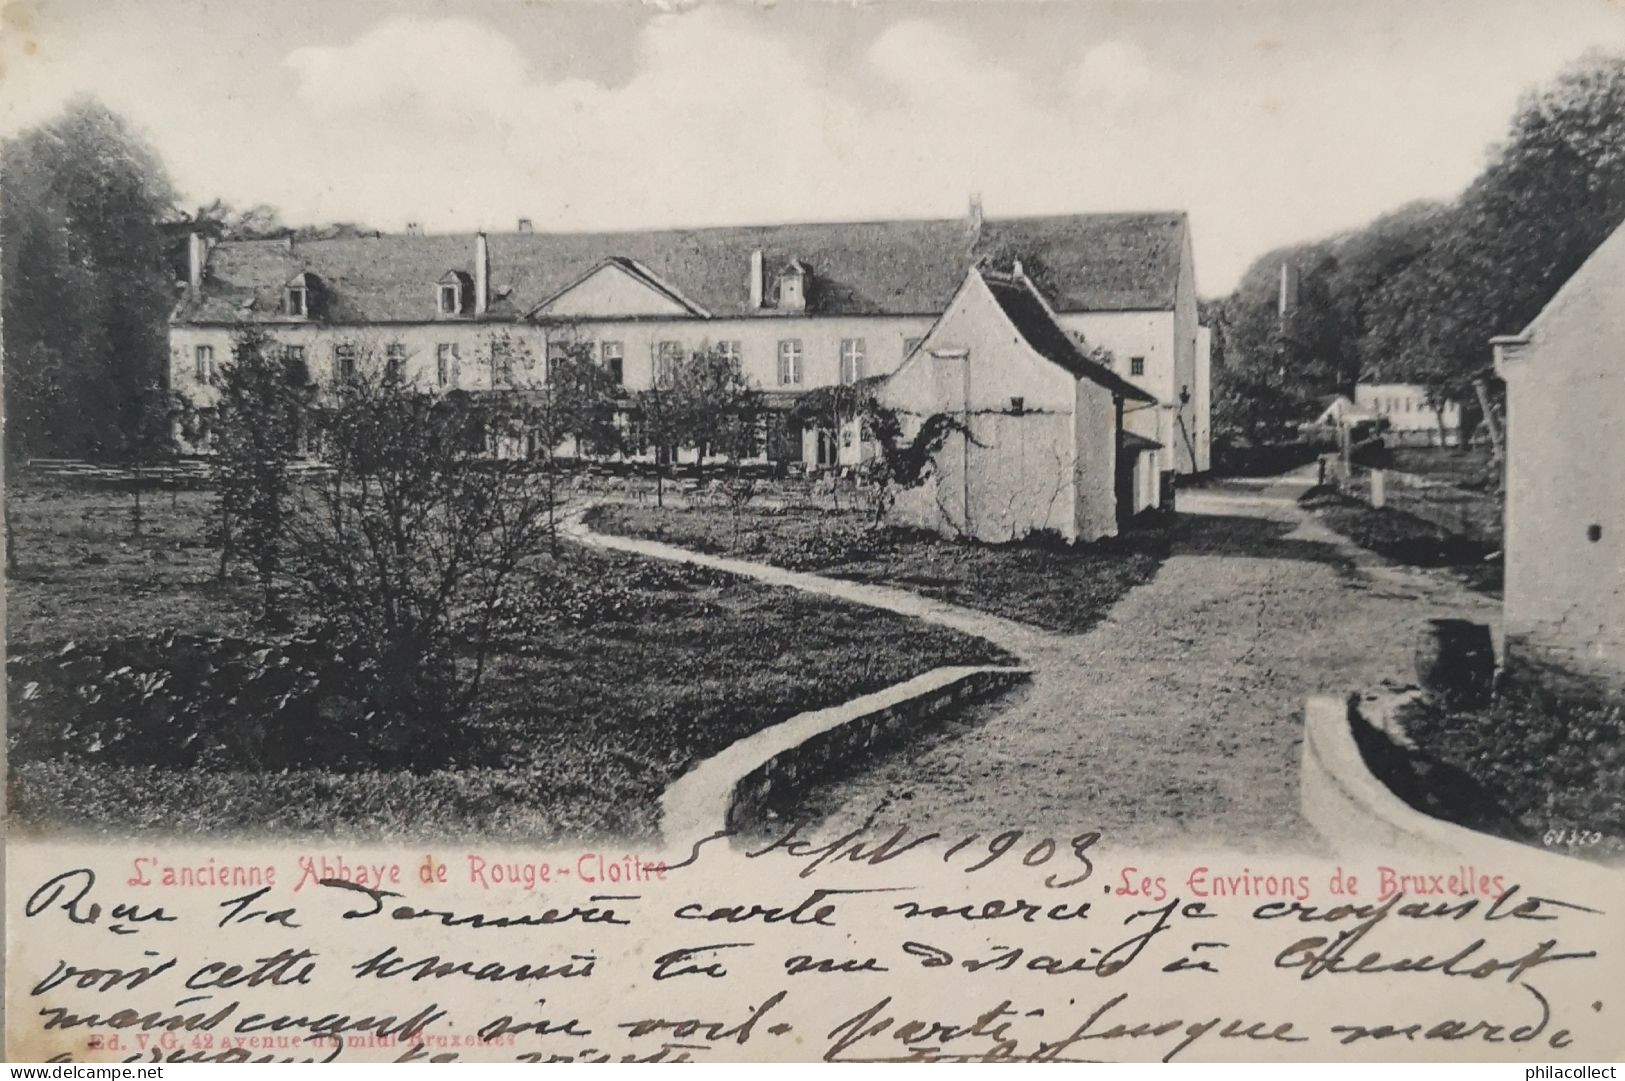 61320
5 Sept 1903
L'ancienne Abbaye de Rouge-Cloître
Les Environs de Bruxelles
Reçu ta dernière carte merci je croyais te
voir cette semaine tu me disais à
maintenant me voila parti jusque mardi
Ed. V.G. 42 avenue du midi Bruxelles
a quand ta visite
delcampe.net
philacollect